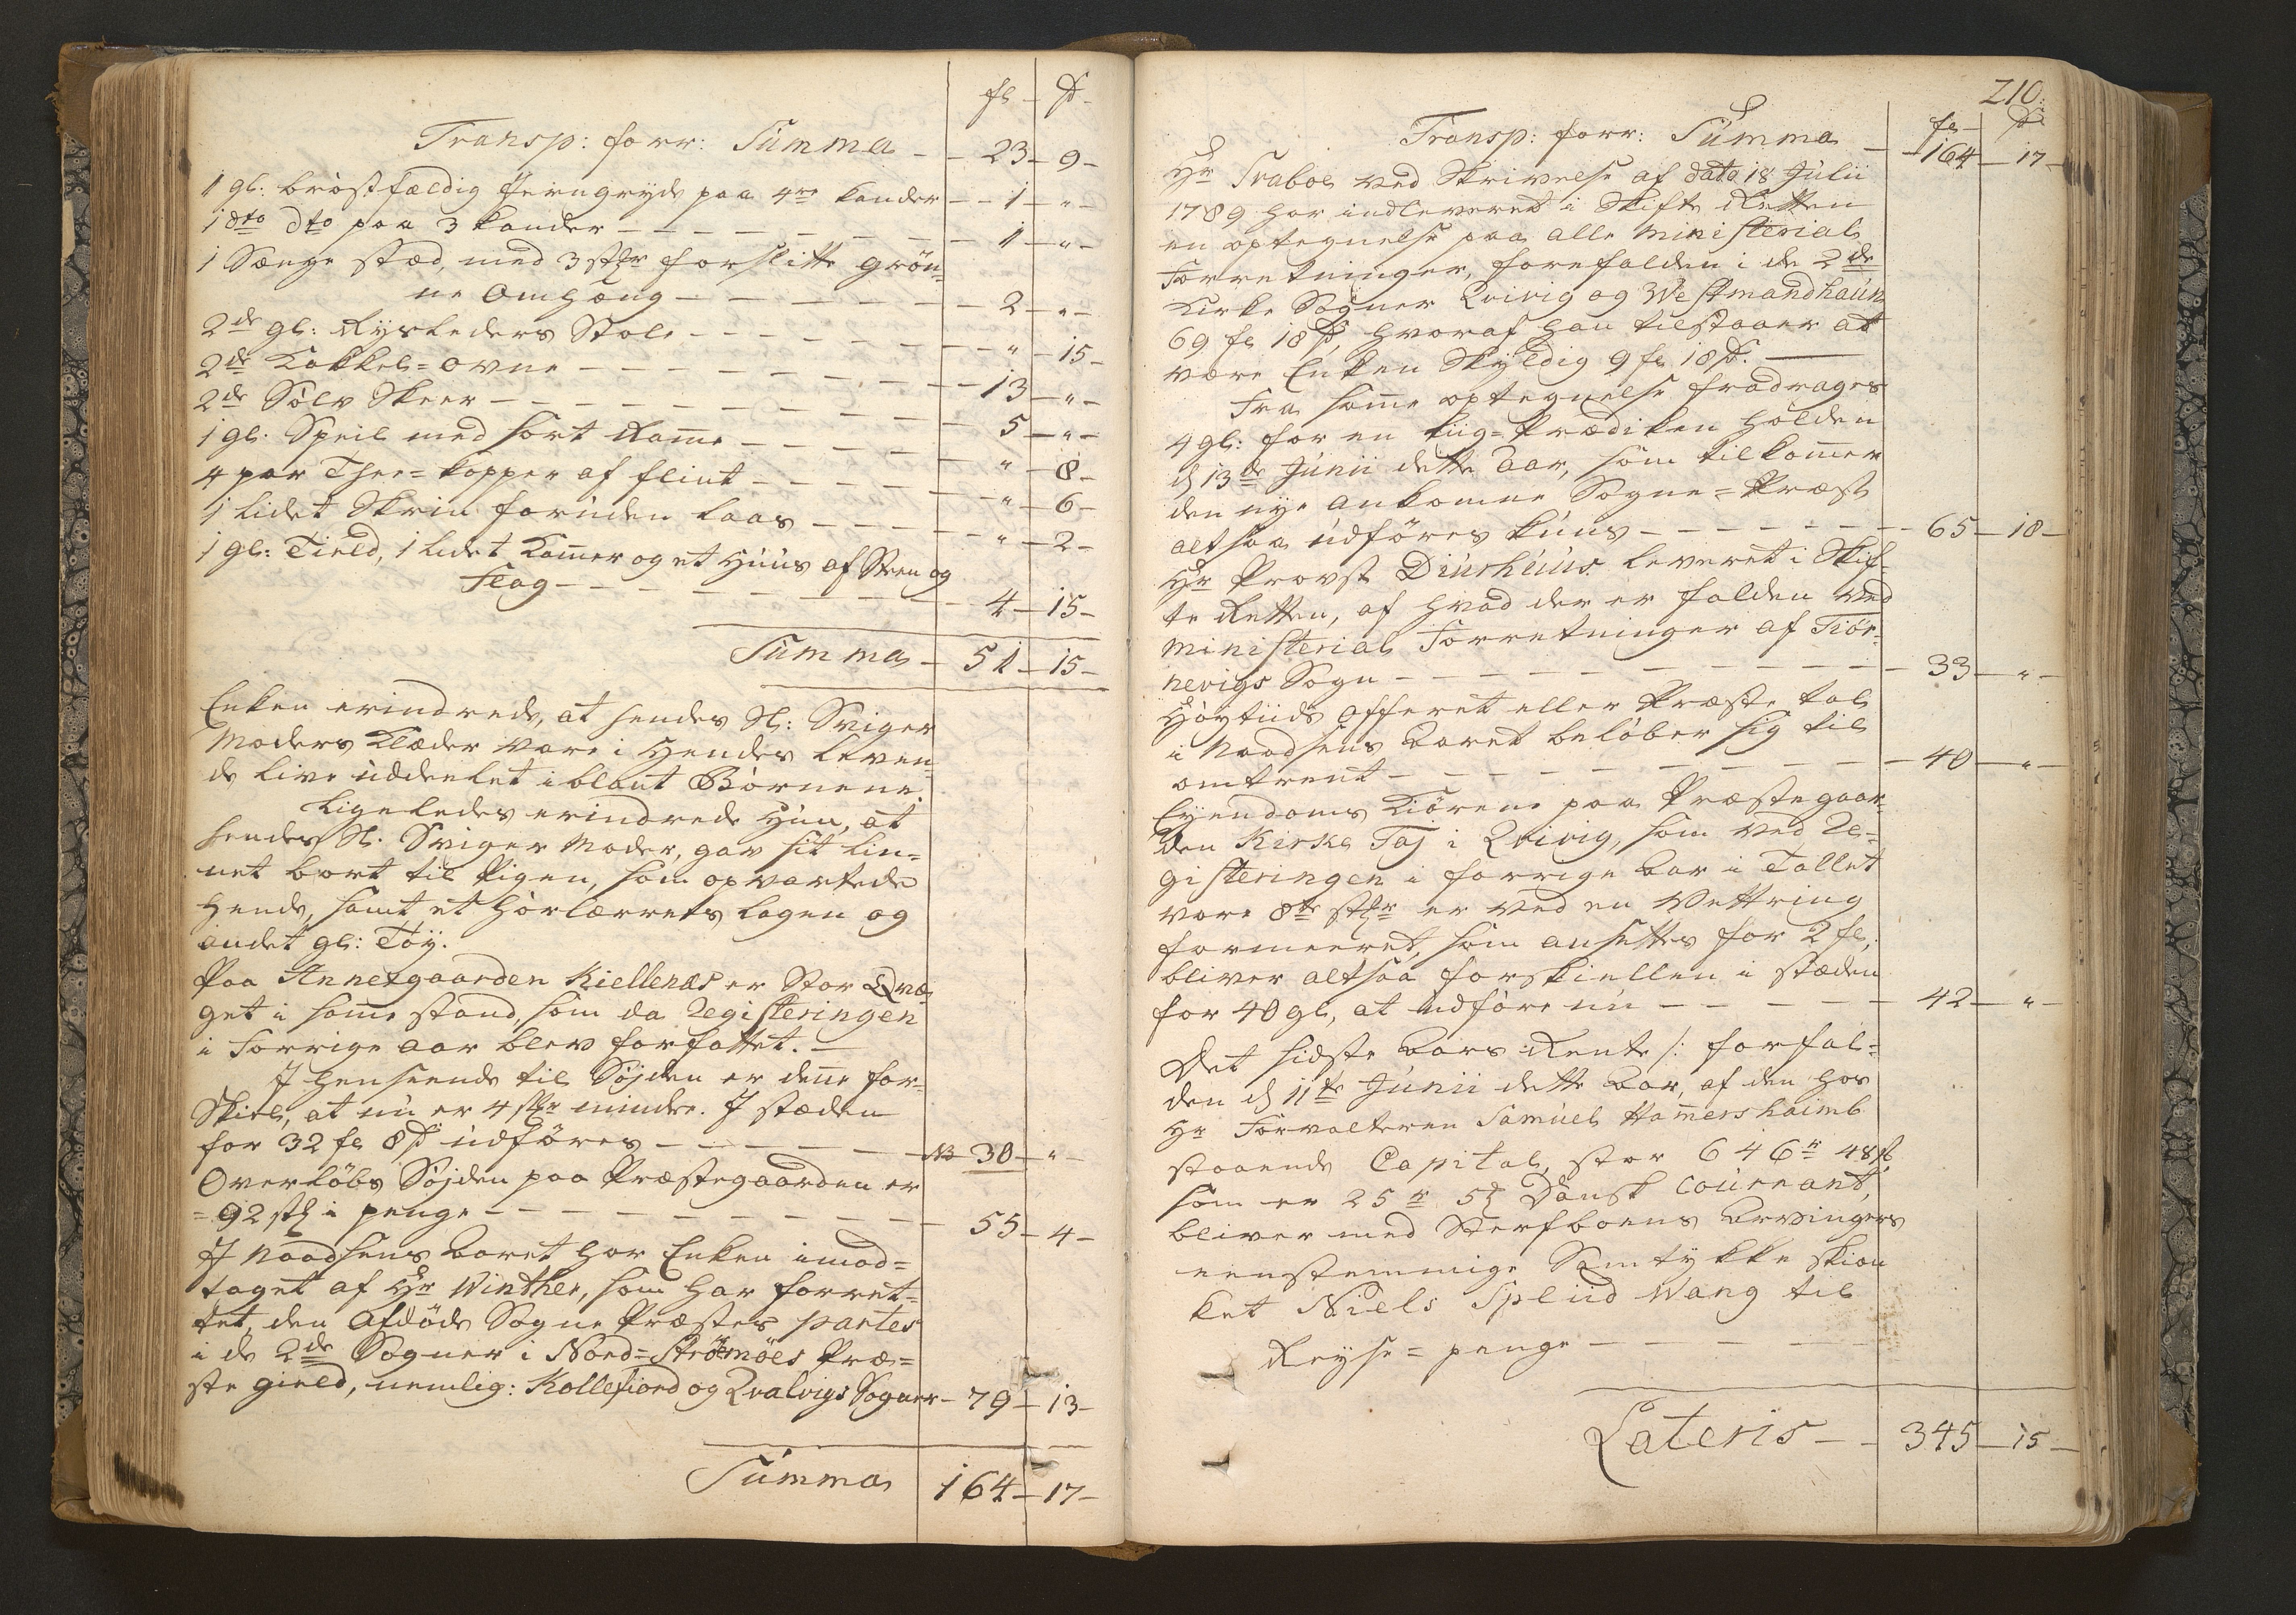 fl - ß -
Transp: forr: Summa - - 23 - 9 -
1 gl: bröstfældig Jerngryde paa 4re kander - - 1 - " -
1 dto dto paa 3 kander - - - - - - 1 - " -
1 Senge stæd, med 3 stkr forslitte grön=
ne Omhæng - - - - - - 2 - " -
2de gl: Ryslæders Stole - - - - - " - 15 -
2de Kakkel=ovne - - - - - - - 13 - " -
2de Sølv Skeer - - - - - - - 5 - " -
1 gl: Speil med sort Ramme - - - - " - 8 -
4 par Thee=kopper af flint - - - - " - 6 -
1 lidet Skrin foruden laas - - - - " - 2 -
1 gl: Tield, 1 lidet Kammer og et Huus af Steen og
Flag - - - - - - - 4 - 15 -
Summa - 51 - 15 -
Enken erindrede, at hendes Sl: Sviger
Moders Klæder vare i Hendes leven=
de live uddeelet iblant Börnene.
Ligeledes erindrede Hun, at
hendes Sl. Sviger Moder, gav sit lin=
net bort til Pigen, som opvartede
Hende, samt et Hörlærrets lagen og
andet gl: Töÿ.
Paa Annexgaarden Kiellenæs er Stor Qvæ=
get i samme stand, som da Registeringen
i Forrige aar blev forfattet. -
I henseende til Söjden er denne for=
skiel, at nu er 4 stkr mindre. I stæden
for 32 fl 8 ß udföres - - - - - NB 30 - " -
Overløbs Söjden paa Præstegaarden er
= 92 stk i penge - - - - - - - 55 - 4 -
I Naadsens Aaret har Enken imod=
taget af Hr Winther, som har forret=
tet den Afdöde Sogne Præstes partes
i de 2de Sogner i Nord=Strömöes Præ=
ste gield, nemlig: Kollefiord og Qvalvigs Sogner - 79 - 13 -
Summa 164 - 17 -
210.
fl - ß
Transp: forr: Summa - - 164 - 17 -
Hr Traboe ved Skrivelse af dato 18 Julii
1789 har indleveret i Skifte Retten
en optegnelse paa alle Ministerial
Forretninger, forefalden i de 2de
Kirke Sogner Qvivig og Westmandhaun
69 fl 18 ß, hvoraf han tilstaaer at
være Enken Skyldig 9 fl 18 ß. -
Fra samme optegnelse fradrages
4 gl: for en Liig=Prædiken holden
d 13de Junii dette Aar, som tilkommer
den nye ankomne Sogne=Præst
altsaa udföres kuns - - - - - - 65 - 18 -
Hr Provst Diurhuus leveret i Skif=
te Retten, af hvad der er falden ved
Ministerial Forretninger af Tiör=
nevigs Sogn - - - - - - - - 33 - " -
Höytiids Offeret eller Præste tol
i Naadsens Aaret belöber sig til
omtrent - - - - - - - - 40 - " -
Eyendoms Kiörene paa Præstegaar=
den Kirke Taj i Qvivig, som ved Re=
gisteringen i forrige Aar i Tallet
vare 8te stkr er ved en Vettring
formeeret, som ansættes for 2 fl,
bliver altsaa forskiellen i stæden
for 40 gl, at udföre nu - - - - - 42 - " -
Det sidste Aars Rente /: forfal=
den d 11te Junii dette Aar, af den hos
Hr Forvalteren Samuel Hammershaimb
staaende Capital, stor 646 rr 48 ß
som er 25 rr 5 ß Dansk Courant,
bliver med Sterfboens Arvingers
eenstemmige Samtykke skien
ket Niels Splid Wang til
Reyse=penge - - - - - -
Lateris - - 345 - 15 -